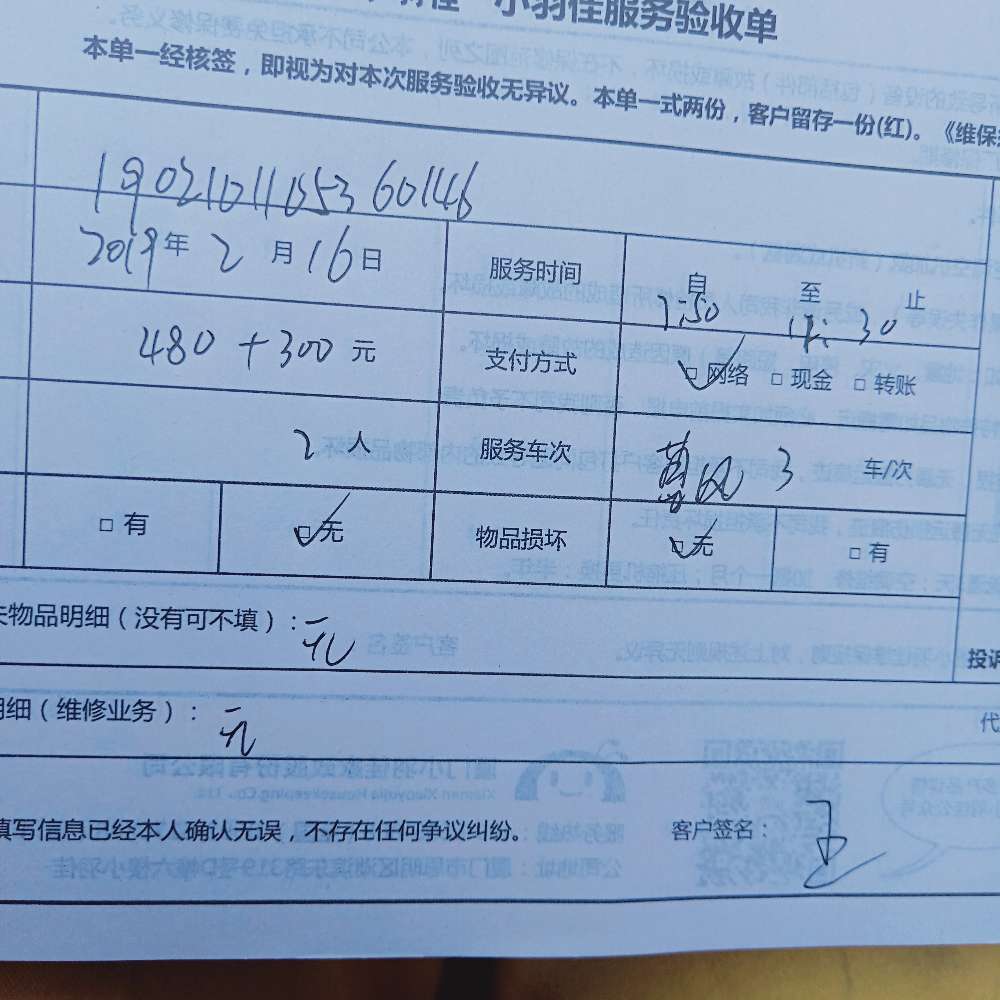 小羽佳服务验收单
本单一经核签，即视为对本次服务验收无异议。本单一式两份，客户留存一份(红)。《维保
2019年 2 月 16 日 服务时间 自 至 止
7:50
480 + 300 元 支付方式 □ 网络 □ 现金 □ 转账
2 人 服务车次 3 车/次
□ 有 □ 无 物品损坏 □ 无 □ 有
失物品明细（没有可不填）： 无
投诉
明细（维修业务）： 无
代
填写信息已经本人确认无误，不存在任何争议纠纷。 客户签名： 王